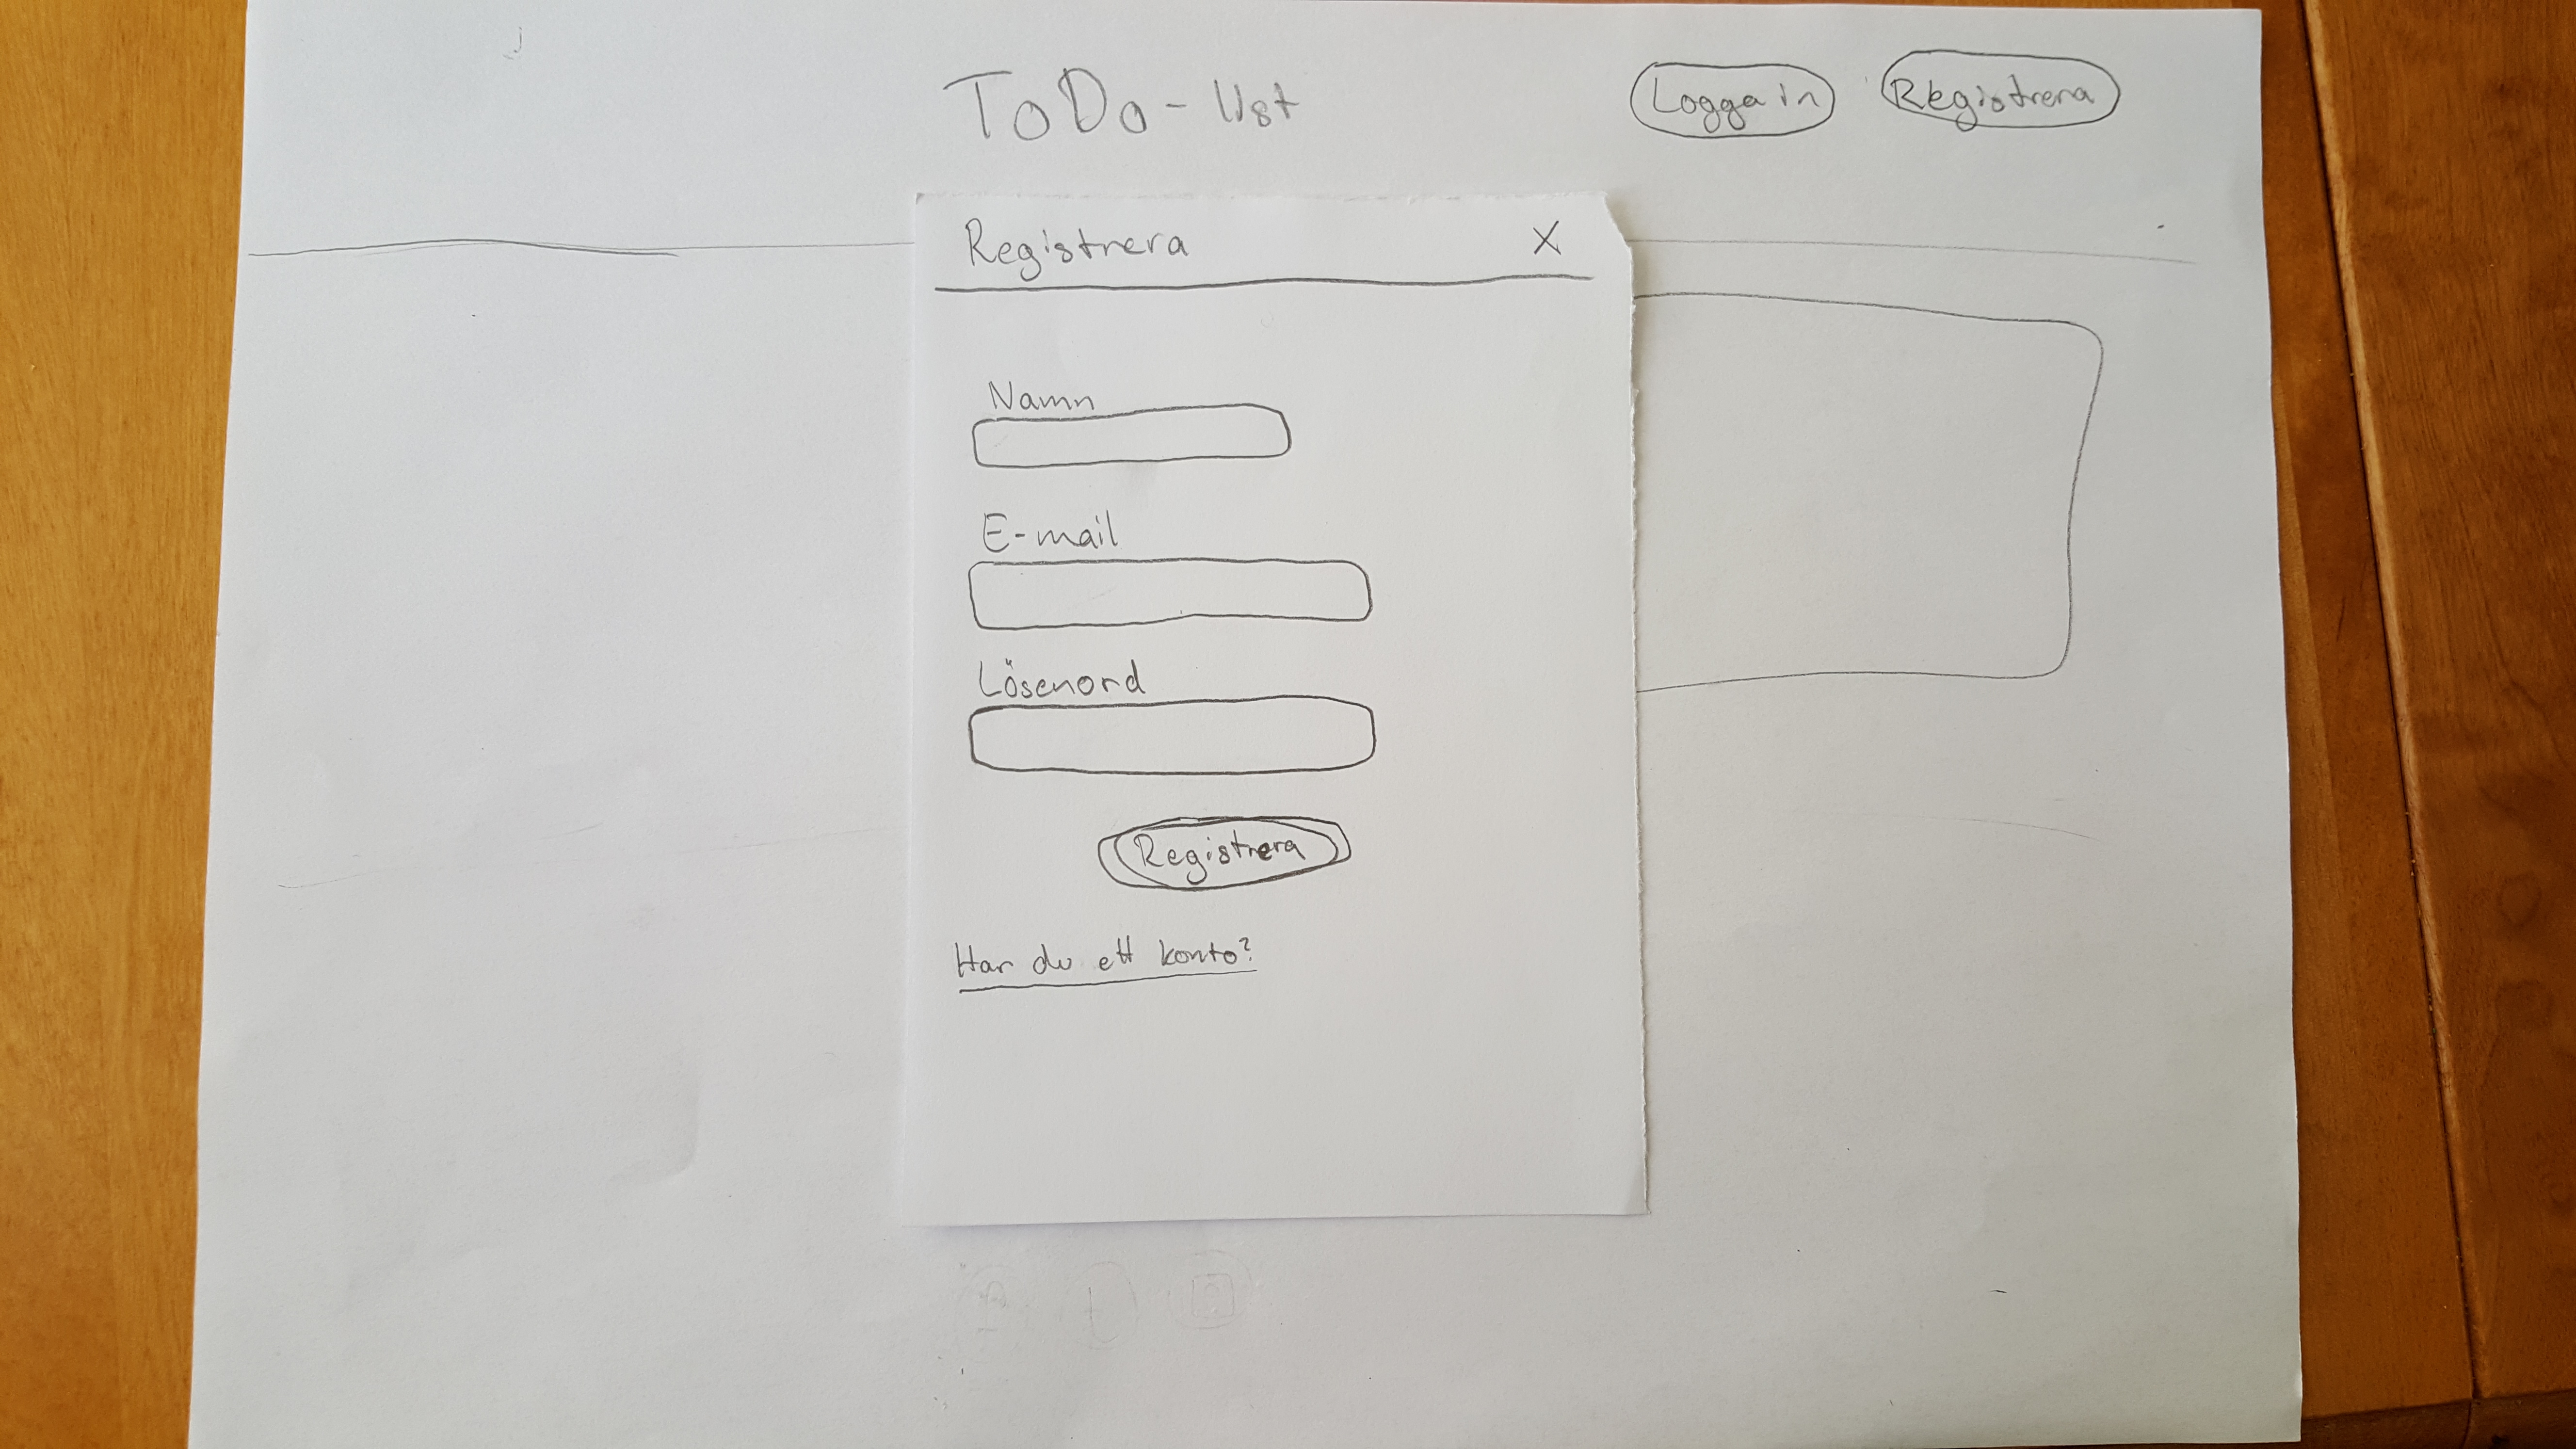 ToDo-list
Logga in
Registrera
Registrera
X
Namn
E-mail
Lösenord
Registrera
Har du ett konto?